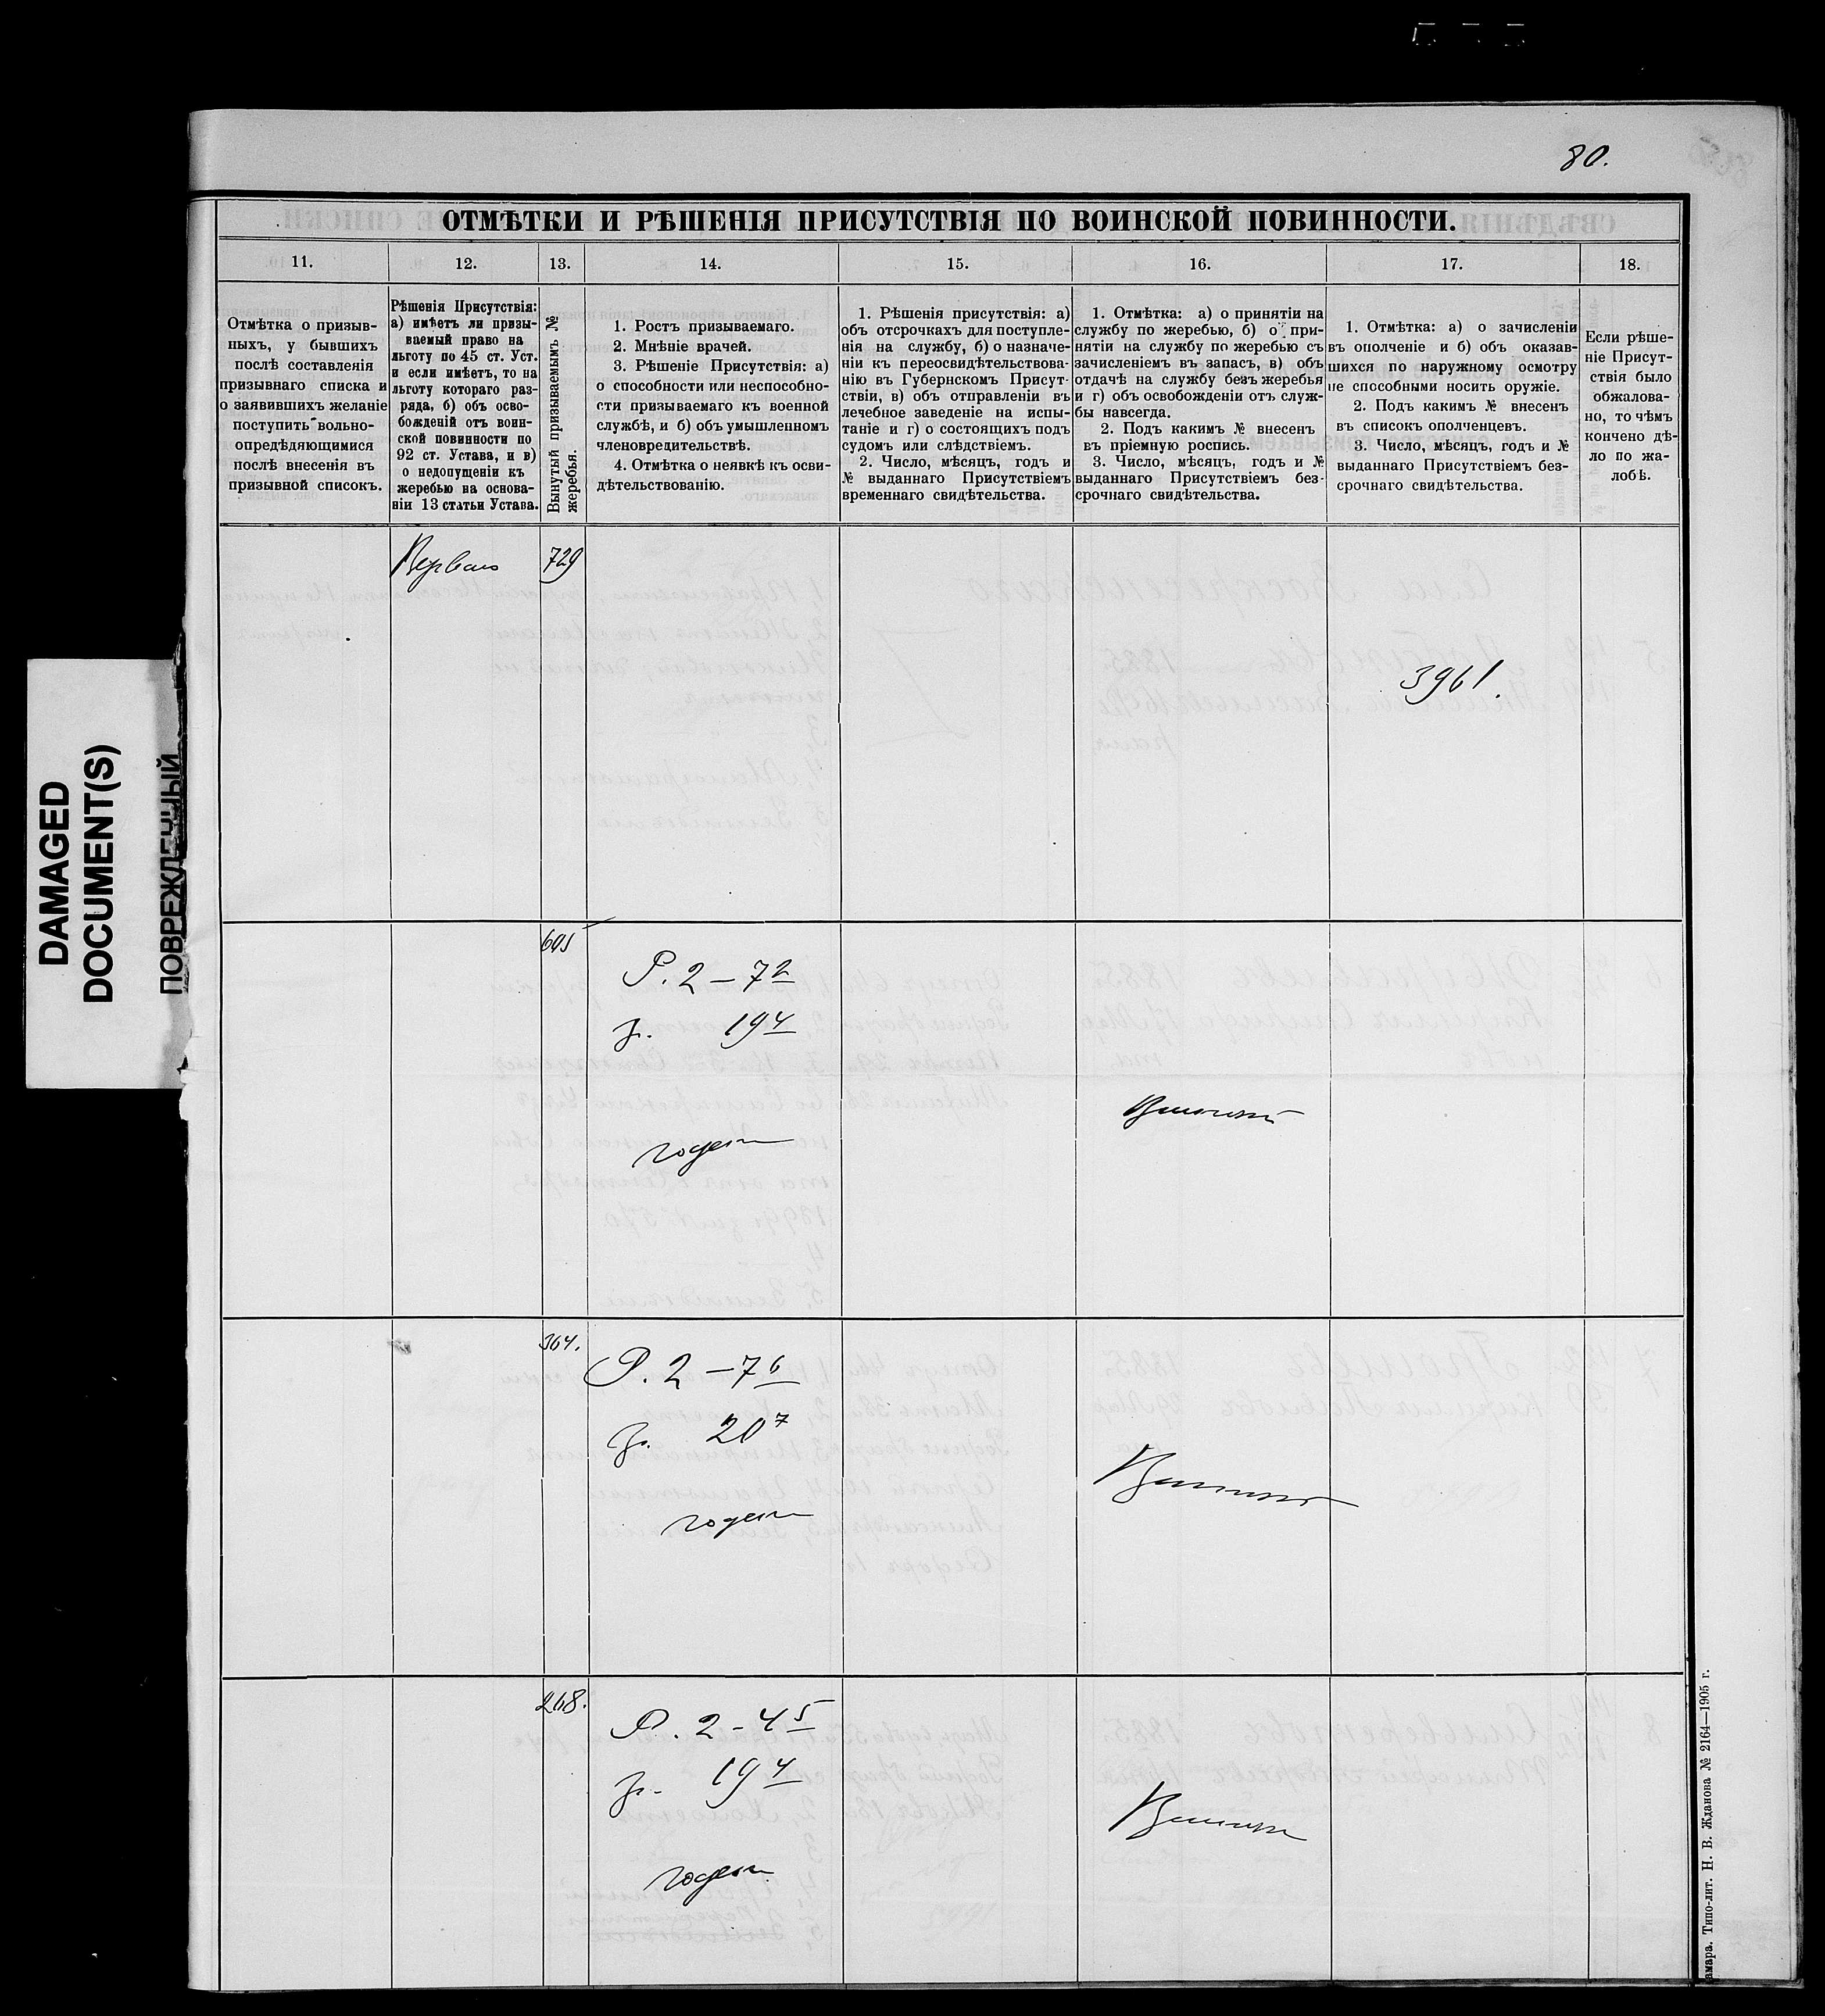 80.
ОТМѢТКИ И РѢШЕНІЯ ПРИСУТСТВІЯ ПО ВОИНСКОЙ ПОВИННОСТИ.
11. 12. 13. 14. 15. 16. 17. 18.
Отмѣтка о призыв-
ныхъ, у бывшихъ
послѣ составленія
призывнаго списка и
о заявившихъ желаніе
поступить вольно-
опредѣдяющимися
послѣ внесенія въ
призывной списокъ.
Рѣшенія Присутствія:
а) имѣетъ ли призы-
ваемый право на
льготу по 45 ст. Уст.
и если имѣетъ, то на
льготу котораго раз-
ряда, б) объ осво-
божденій отъ воин-
ской повинности по
92 ст. Устава, и в)
о недопущеніи къ
жеребью на основа-
ніи 13 статьи Устава.
Вынутый призываемымъ №
жеребья.
1. Ростъ призываемаго.
2. Мнѣніе врачей.
3. Рѣшеніе Присутствія: а)
о способности или неспособно-
сти призываемаго къ военной
службѣ, и б) объ умышленномъ
членовредительствѣ.
4. Отмѣтка о неявкѣ къ осви-
дѣтельствованію.
1. Рѣшенія присутствія: а)
объ отсрочкахъ для поступле-
нія на службу, б) о назначе-
ніи къ переосвидѣтельствова-
нію въ Губернскомъ Присут-
ствіи, в) объ отправленіи въ
лечебное заведеніе на испы-
таніе и г) о состоящихъ подъ
судомъ или слѣдствіемъ.
2. Число, мѣсяцъ, годъ и
№ выданнаго Присутствіемъ
временнаго свидѣтельства.
1. Отмѣтка: а) о принятіи на
службу по жеребью, б) о при-
нятіи на службу по жеребью съ
зачисленіемъ въ запасъ, в) объ
отдачѣ на службу безъ жеребья
и г) объ освобожденіи отъ служ-
бы навсегда.
2. Подъ какимъ № внесенъ
въ пріемную роспись.
3. Число, мѣсяцъ, годъ и №
выданнаго Присутствіемъ без-
срочнаго свидѣтельства.
1. Отмѣтка: а) о зачисленіи
въ ополченіе и б) объ оказав-
шихся по наружному осмотру
не способными носить оружіе.
2. Подъ какимъ № внесенъ
въ список ополченцевъ.
3. Число, мѣсяцъ, годъ и №
выданнаго Присутствіемъ без-
срочнаго свидѣтельства.
Если рѣше-
ніе Присут-
ствія было
обжалова-
но, то чѣмъ
кончено дѣ-
ло по жа-
лобѣ.
729
3961.
Р. 2 – 72
гр. 194
годен
364.
Р. 2 – 76
гр. 207
годен
268.
Р. 2 - 45
гр. 194
годен
DAMAGED
DOCUMENT(S)
ПОВРЕЖДЕННЫЙ
амара. Типо-лит. Н. В. Жданова № 2164—1905 г.